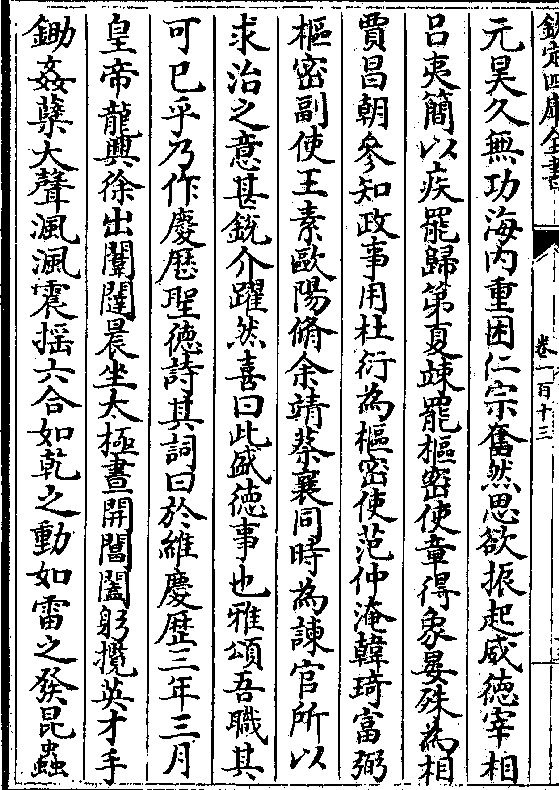 欽定四庫全書
卷一百十三
元昊久無功海内重困仁宗奮然思欲振起威德宰相
吕夷簡以疾罷歸第夏竦罷樞密使章得象晏殊為相
賈昌朝參知政事用杜衍為樞密使范仲淹韓琦富弼
樞密副使王素歐陽脩余靖蔡襄同時為諫官所以
求治之意甚銳介躍然喜曰此盛德事也雅頌吾職其
可已乎乃作慶厯聖德詩其詞曰於維慶厯三年三月
皇帝龍興徐出闈闥晨坐太極晝開閶闔躬攬英才手
鋤姦蘖大聲渢渢震摇六合如乾之動如雷之發昆蟲